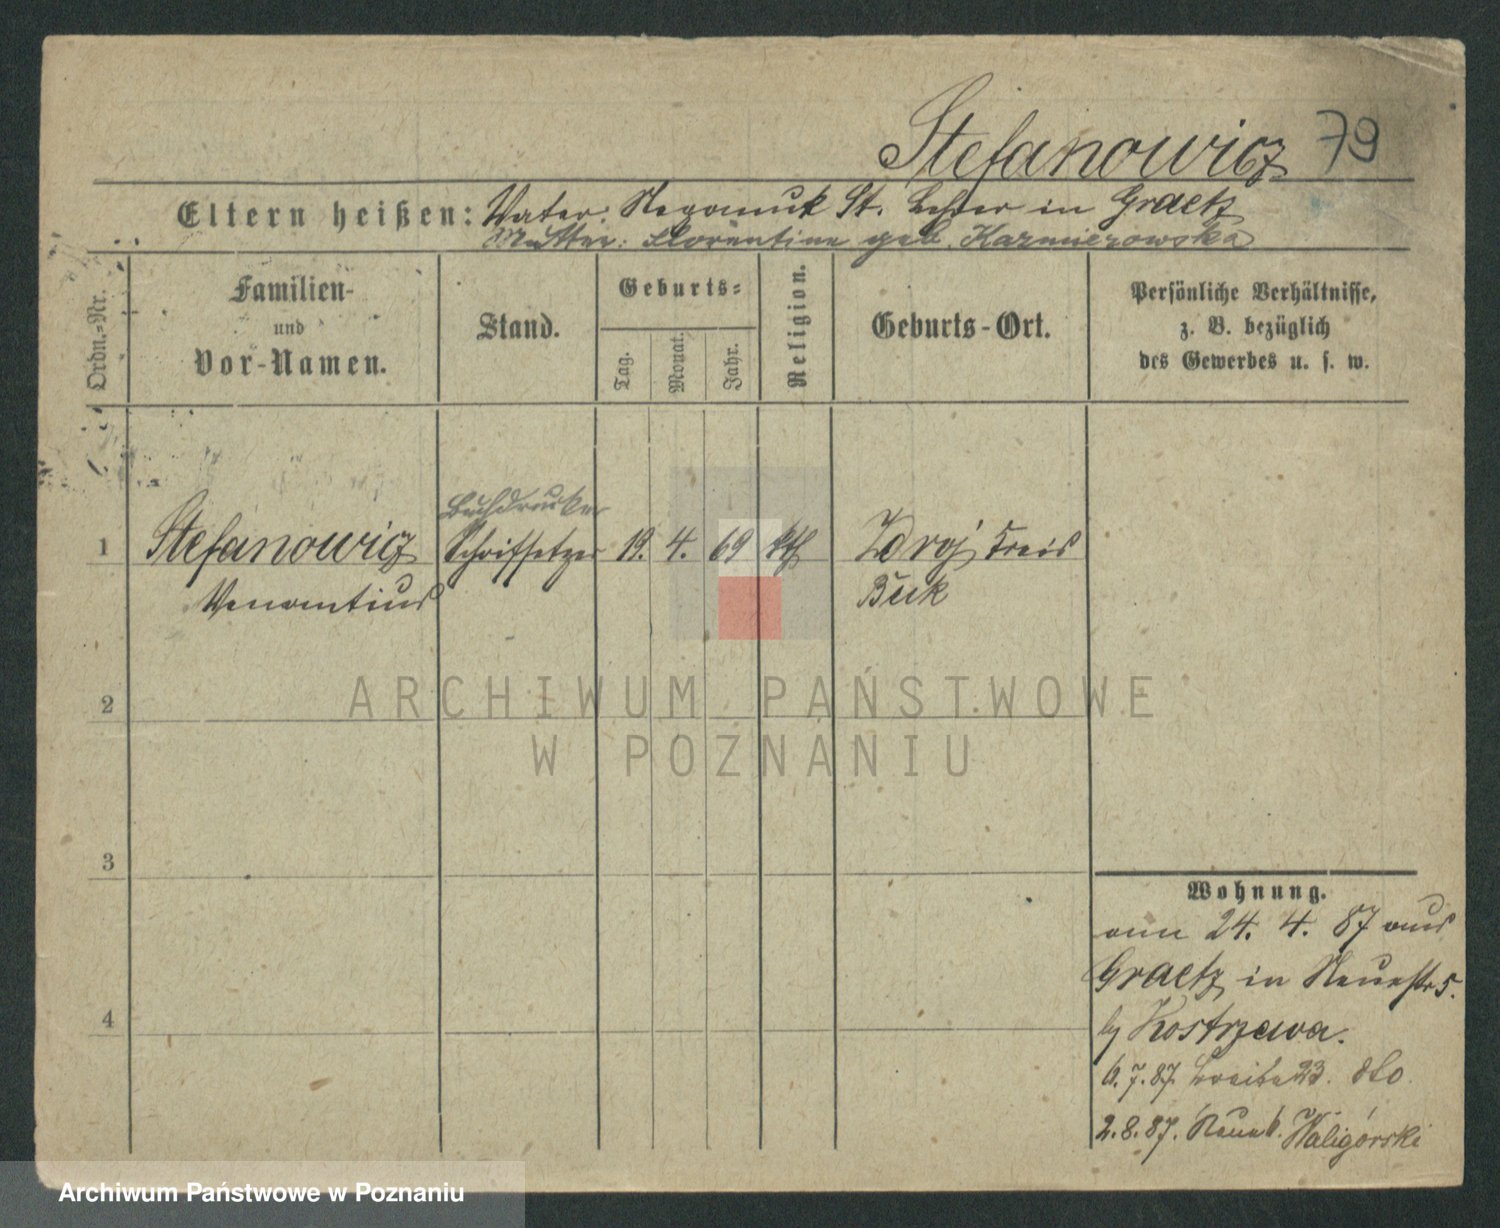 Stefanowicz 79
Eltern heißen: Vater: Nepomuk St. Lehrer in Graetz
Mutter: Florentine geb. Kazmierowska
Ordn.-Nr.
Familien-
und
Vor-Namen.
Stand.
Geburts-
Tag.
Monat.
Jahr.
Religion.
Geburts-Ort.
Persönliche Verhältnisse,
z. B. bezüglich
des Gewerbes u. s. w.
Buchdrucker
1 Stefanowicz Schriftsetzer 19. 4. 69 kth Zdroj Kreis
Venantius Buk
2
ARCHIWUM PAŃSTWOWE
W POZNANIU
3
Wohnung.
am 24. 4. 87 aus
Graetz in Neuestr 5.
by Kostrzewa.
4
6. 7. 87. Breite 23. dto.
2. 8. 87. Neue 6. Waligórski
Archiwum Państwowe w Poznaniu